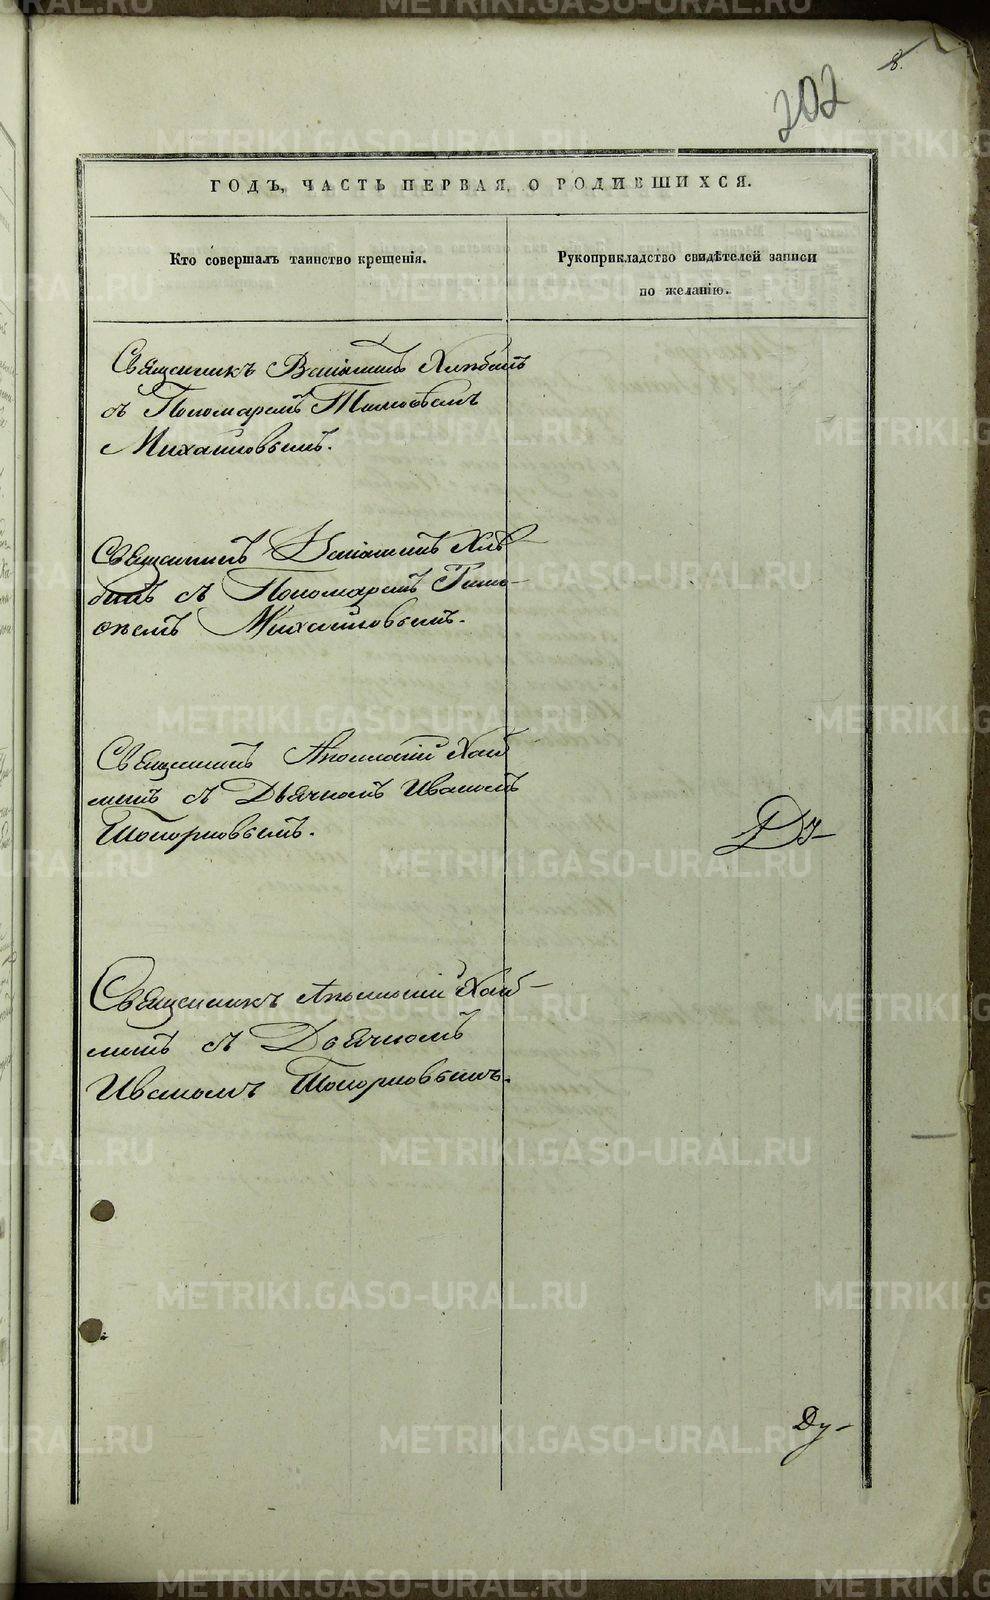 8.
202
ГОДЪ, ЧАСТЬ ПЕРВАЯ, О РОДИВШИХСЯ.
Кто совершалъ таинство крещенія.
Рукоприкладство свидѣтелей записи
по желанію.
Священникъ Хлѣбинъ
съ Пономаремъ Тимофеемъ
Михайловымъ.
Священникъ Хлѣ-
бинъ съ Пономаремъ Тимо-
феемъ Михайловымъ.
Священникъ Аполлоній
съ Дьячкомъ Иваномъ
Топорковымъ.
Ду-
Священникъ Аполлоній
съ Дьячкомъ
Иваномъ Топорковымъ.
Ду-
METRIKI.GASO-URAL.RU